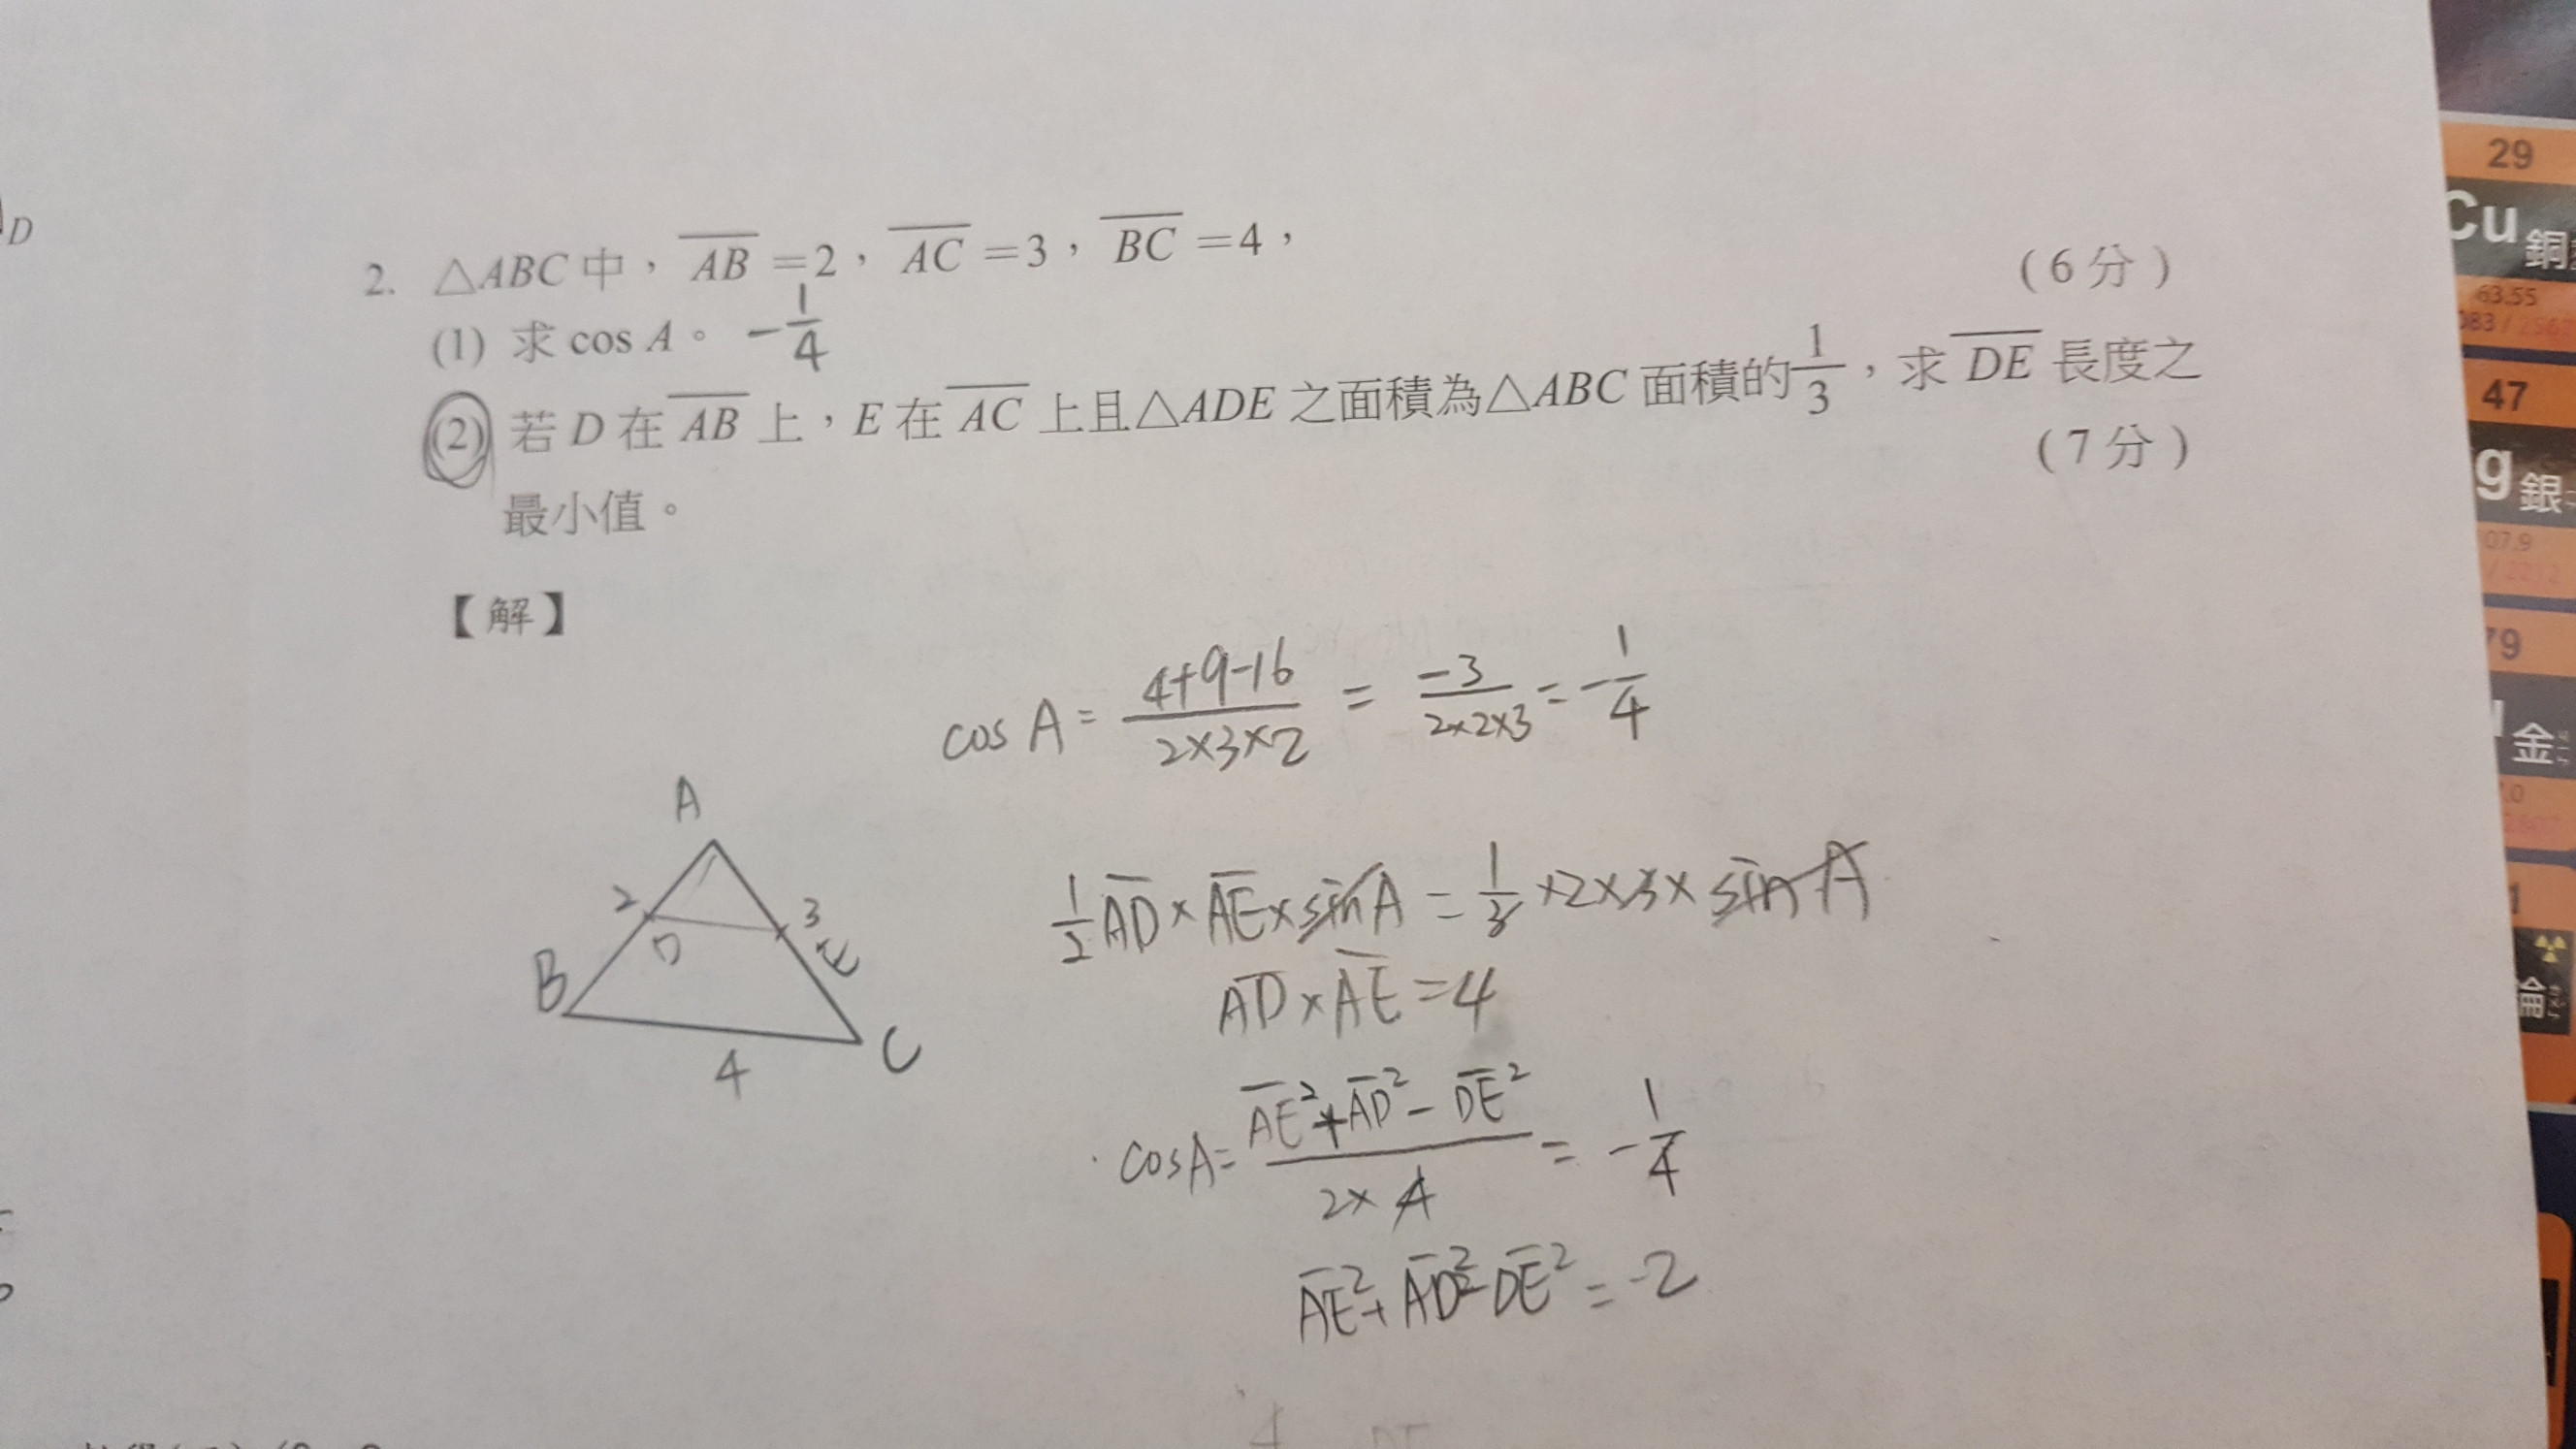 D
2. △ABC 中，AB=2，AC=3，BC=4，
(1) 求 cos A。 -1/4 (6分)
(2) 若 D 在 AB 上，E 在 AC 上且△ADE 之面積為△ABC 面積的1/3，求 DE 長度之
最小值。 (7分)
【解】
cos A = (4+9-16)/(2×3×2) = -3/(2×2×3) = -1/4
A
2
3
D
E
B
C
4
1/2 AD × AE × sin A = 1/3 × 2 × 3 × sin A
AD × AE = 4
cos A = (AE² + AD² - DE²)/(2×4) = -1/4
AE² + AD² - DE² = -2
29
Cu 銅
63.55
47
g 銀
07.9
79
金